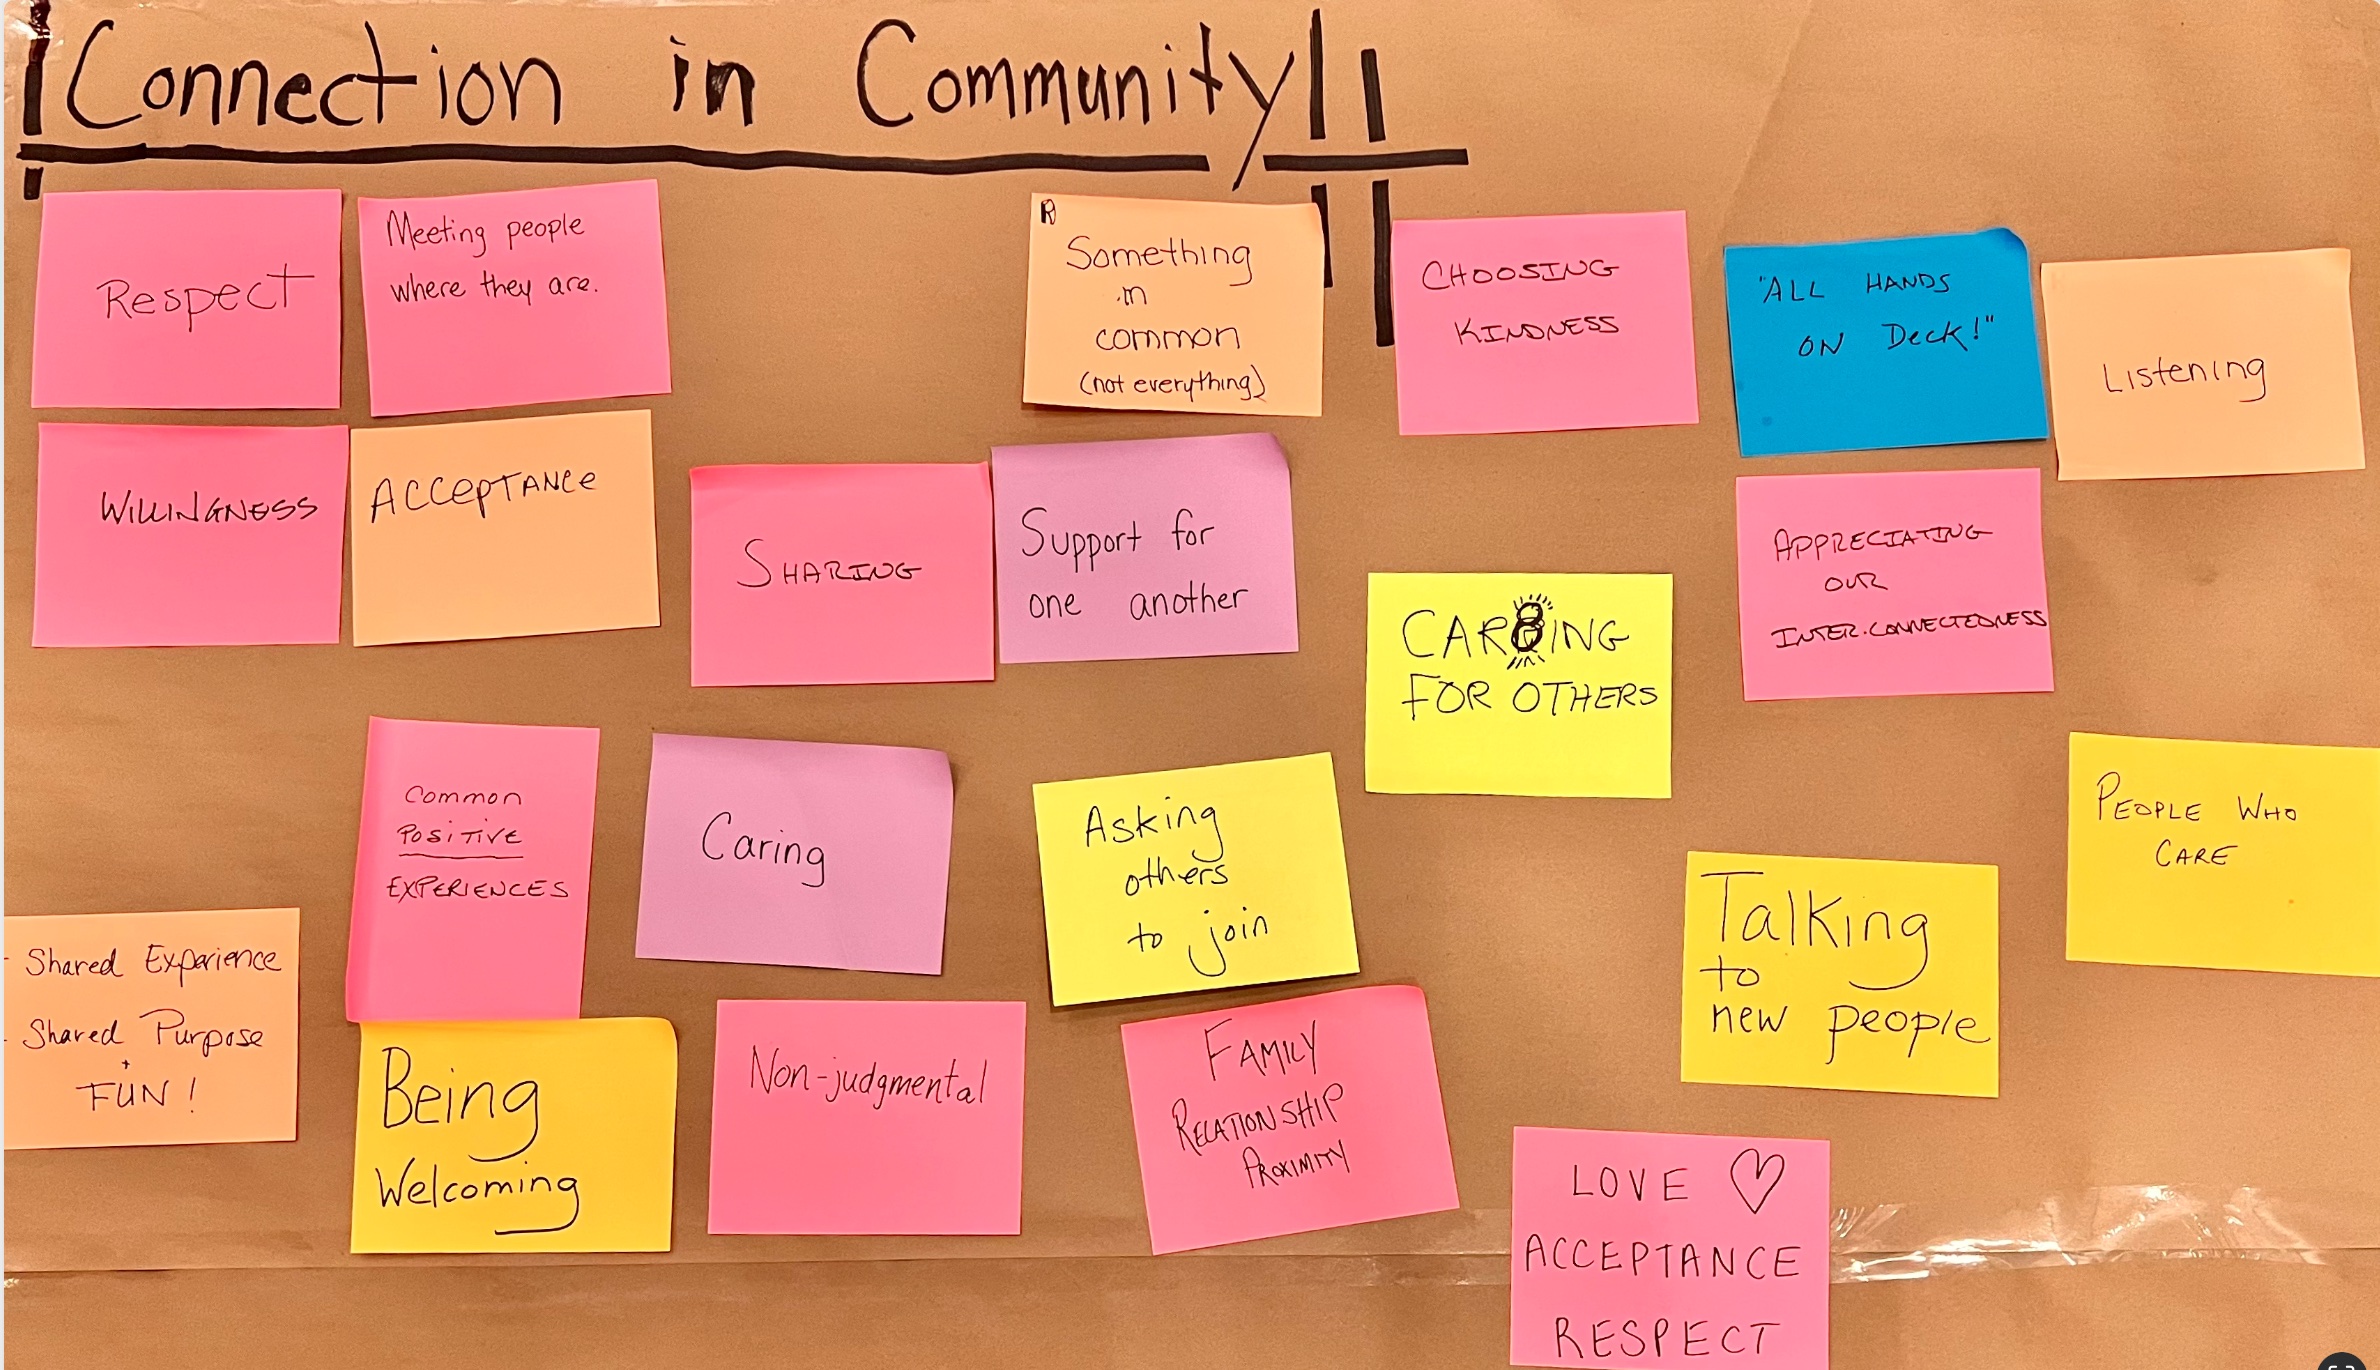 Connection in Community
Respect
Meeting people
where they are.
R
Something
in
common
(not everything)
CHOOSING
KINDNESS
"ALL HANDS
ON DECK!"
Listening
WILLINGNESS
ACCEPTANCE
SHARING
Support for
one another
CARING
FOR OTHERS
APPRECIATING
OUR
INTER.CONNECTEDNESS
COMMON
POSITIVE
EXPERIENCES
Caring
Asking
others
to join
PEOPLE WHO
CARE
- Shared Experience
- Shared Purpose
+
FUN!
Being
Welcoming
Non-judgmental
FAMILY
RELATIONSHIP
PROXIMITY
Talking
to
new people
LOVE ♡
ACCEPTANCE
RESPECT